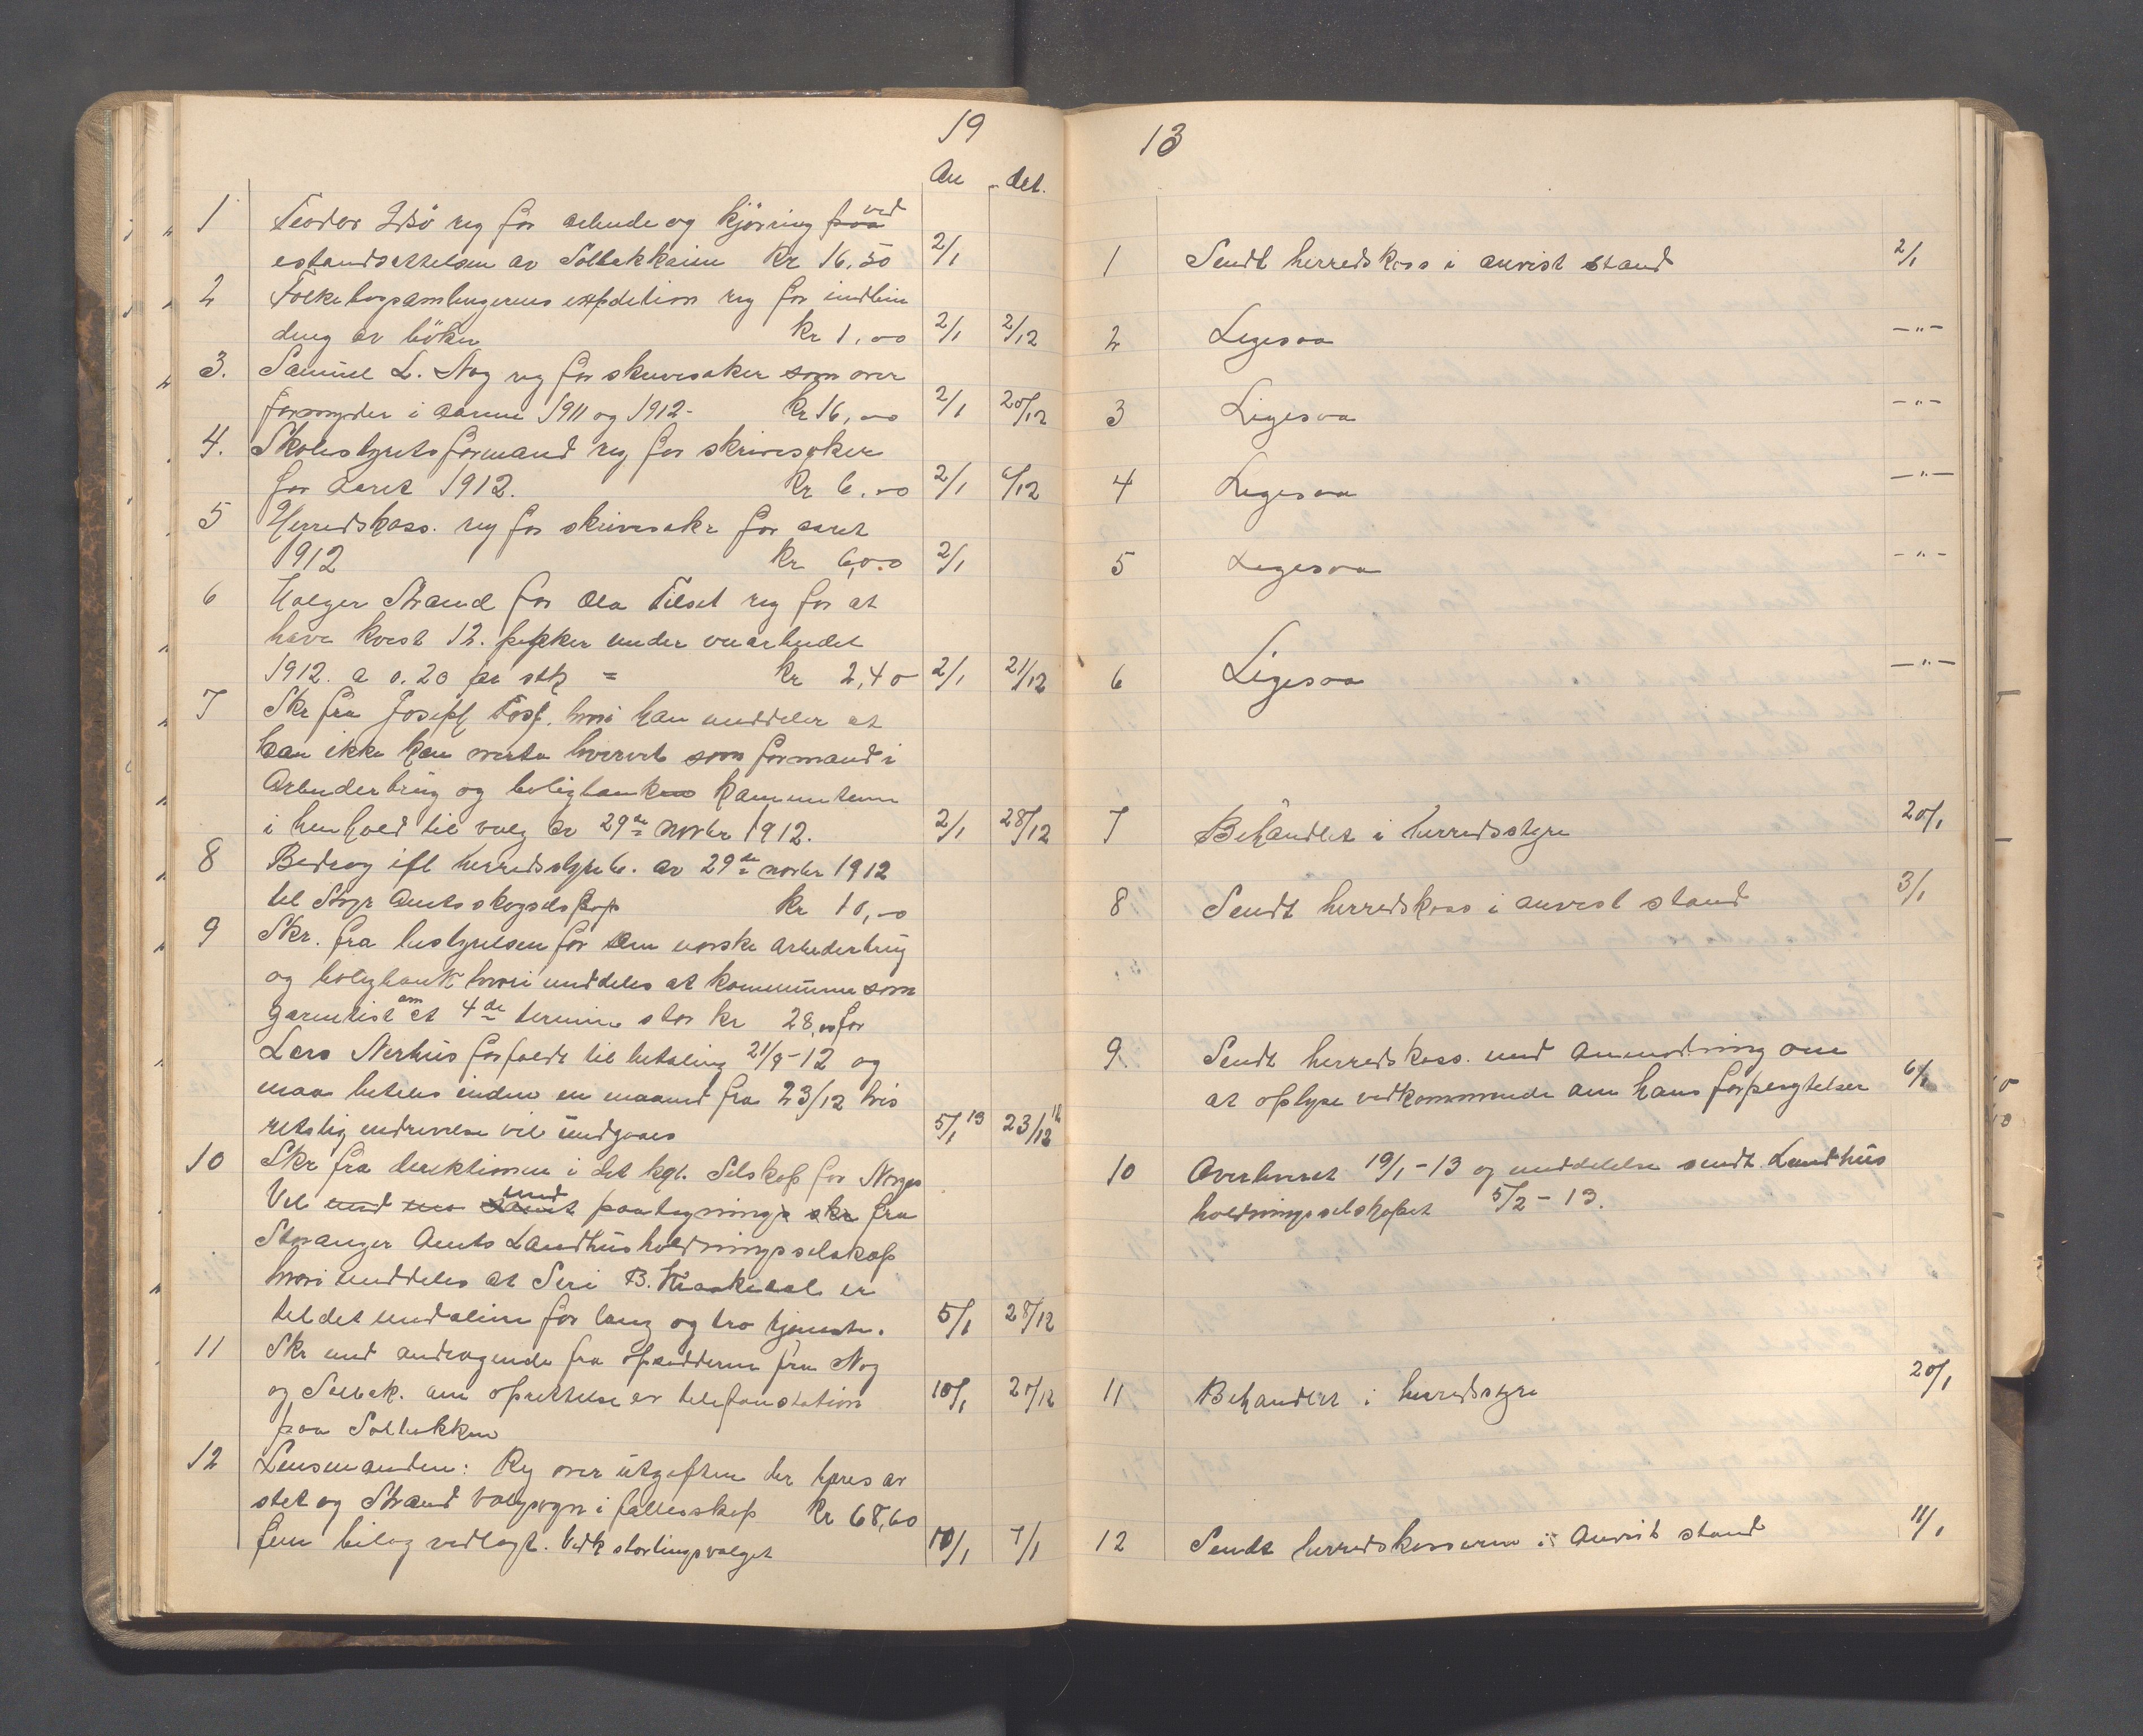 19
An det.
1 Teodor Idsö reg for arbeide og kjöring paa ved
estandsettelsen av Solbakkaien Kr 16.50 2/1
2 Folkebogsamlingernes expdetion reg for indbin
ding av böker kr 1,00 2/1 2/12
3. Samuel L. Nag reg for skrivesaker som over
formynder i aarene 1911 og 1912- kr 16,00 2/1 20/12
4. Skolestyrets formand reg for skrivesaker
for aaret 1912. kr 6.00 2/1 6/12
5 Herredskass. reg for skrivesakr for aaret
1912 kr 6,00 2/1
6 Holger Strand for Ola Tilset reg for at
have kvest 12. pikker under veiarbeidet
1912. a 0.20 pr stk = kr 2,40 2/1 21/12
7 Skr fra Josepf Fosf. hvori han meddeler at
han ikke kan motta hvervet som formand i
Arbeiderbrug og boligbanken kammuteen
i henhold til valg av 29de novbr 1912. 2/1 28/12
8 Bedrag ifl herredsstyreb. av 29de novbr 1912
til Stvgr Amts skogselskap kr 10,00
9 Skr. fra bestyrelsen for den norske arbederbrug
og boligbank hvori meddeles at kommunen som
garentist om et 4de termin stor kr 28,00 for
Lars Nerhus forfaldt til betaling 21/9-12 og
maa beteles inden en maaned fra 23/12 hvis
retslig indrivelse vil undgaaes 5/1 13 23/12 12
10 Skr fra direktionen i det kgl. Selskap for Norges
Vel med paategnings skr fra
Stavanger Amts Landhusholdningsselskap
hvori meddeles at Seri B. Kraakedal er
teldet medaljen for lang og tro tjeneste. 5/1 28/12
11 Skr med andragende fra opsidderne fra Nag
og Solbak. om oprettelse av telefonstation 10/1 27/12
paa Solbakken
12 Lensmanden: Reg over utgiften der høres av
stet og Strand valgsogn i fællesskap kr 68,60
fem bilag vedlagt. Vedk stortingsvalget 10/1 7/1
13
1 Sendt herredskass i anvist stand 2/1
2 Ligesaa -"-
3 Ligesaa -"-
4 Ligesaa -"-
5 Ligesaa -"-
6 Ligesaa -"-
7 Behandlet i herredsstyre 20/1
8 Sendt herredskass i anvist stand 3/1
9 Sendt herredskass. med anmodning om
at oplyse vedkommende om hans forpligtelser 6/1
10 Overleveret 19/1-13 og meddelelse sendt Landhus
holdningsselskapet 5/2-13.
11 Behandlet i herredsstyre 20/1
12 Sendt herredskasseren i anvist stand 11/1